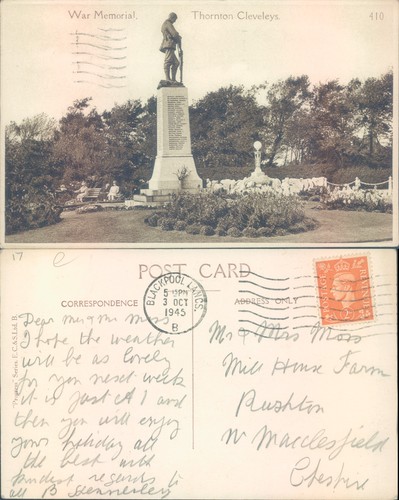 War Memorial, Thornton Cleveleys. 410
17
e
POST CARD
CORRESPONDENCE
ADDRESS ONLY
BLACKPOOL, LANCS.
5 - PM
3 OCT
1945
B
Dear Mr & Mrs Moss
I hope the weather
will be as lovely
for you next week
it is just A1 and
then you will enjoy
your holiday all
the best with
kindest regards to
all B
Mr & Mrs Moss
Mill House Farm
Rushton
Nr Macclesfield
Cheshire